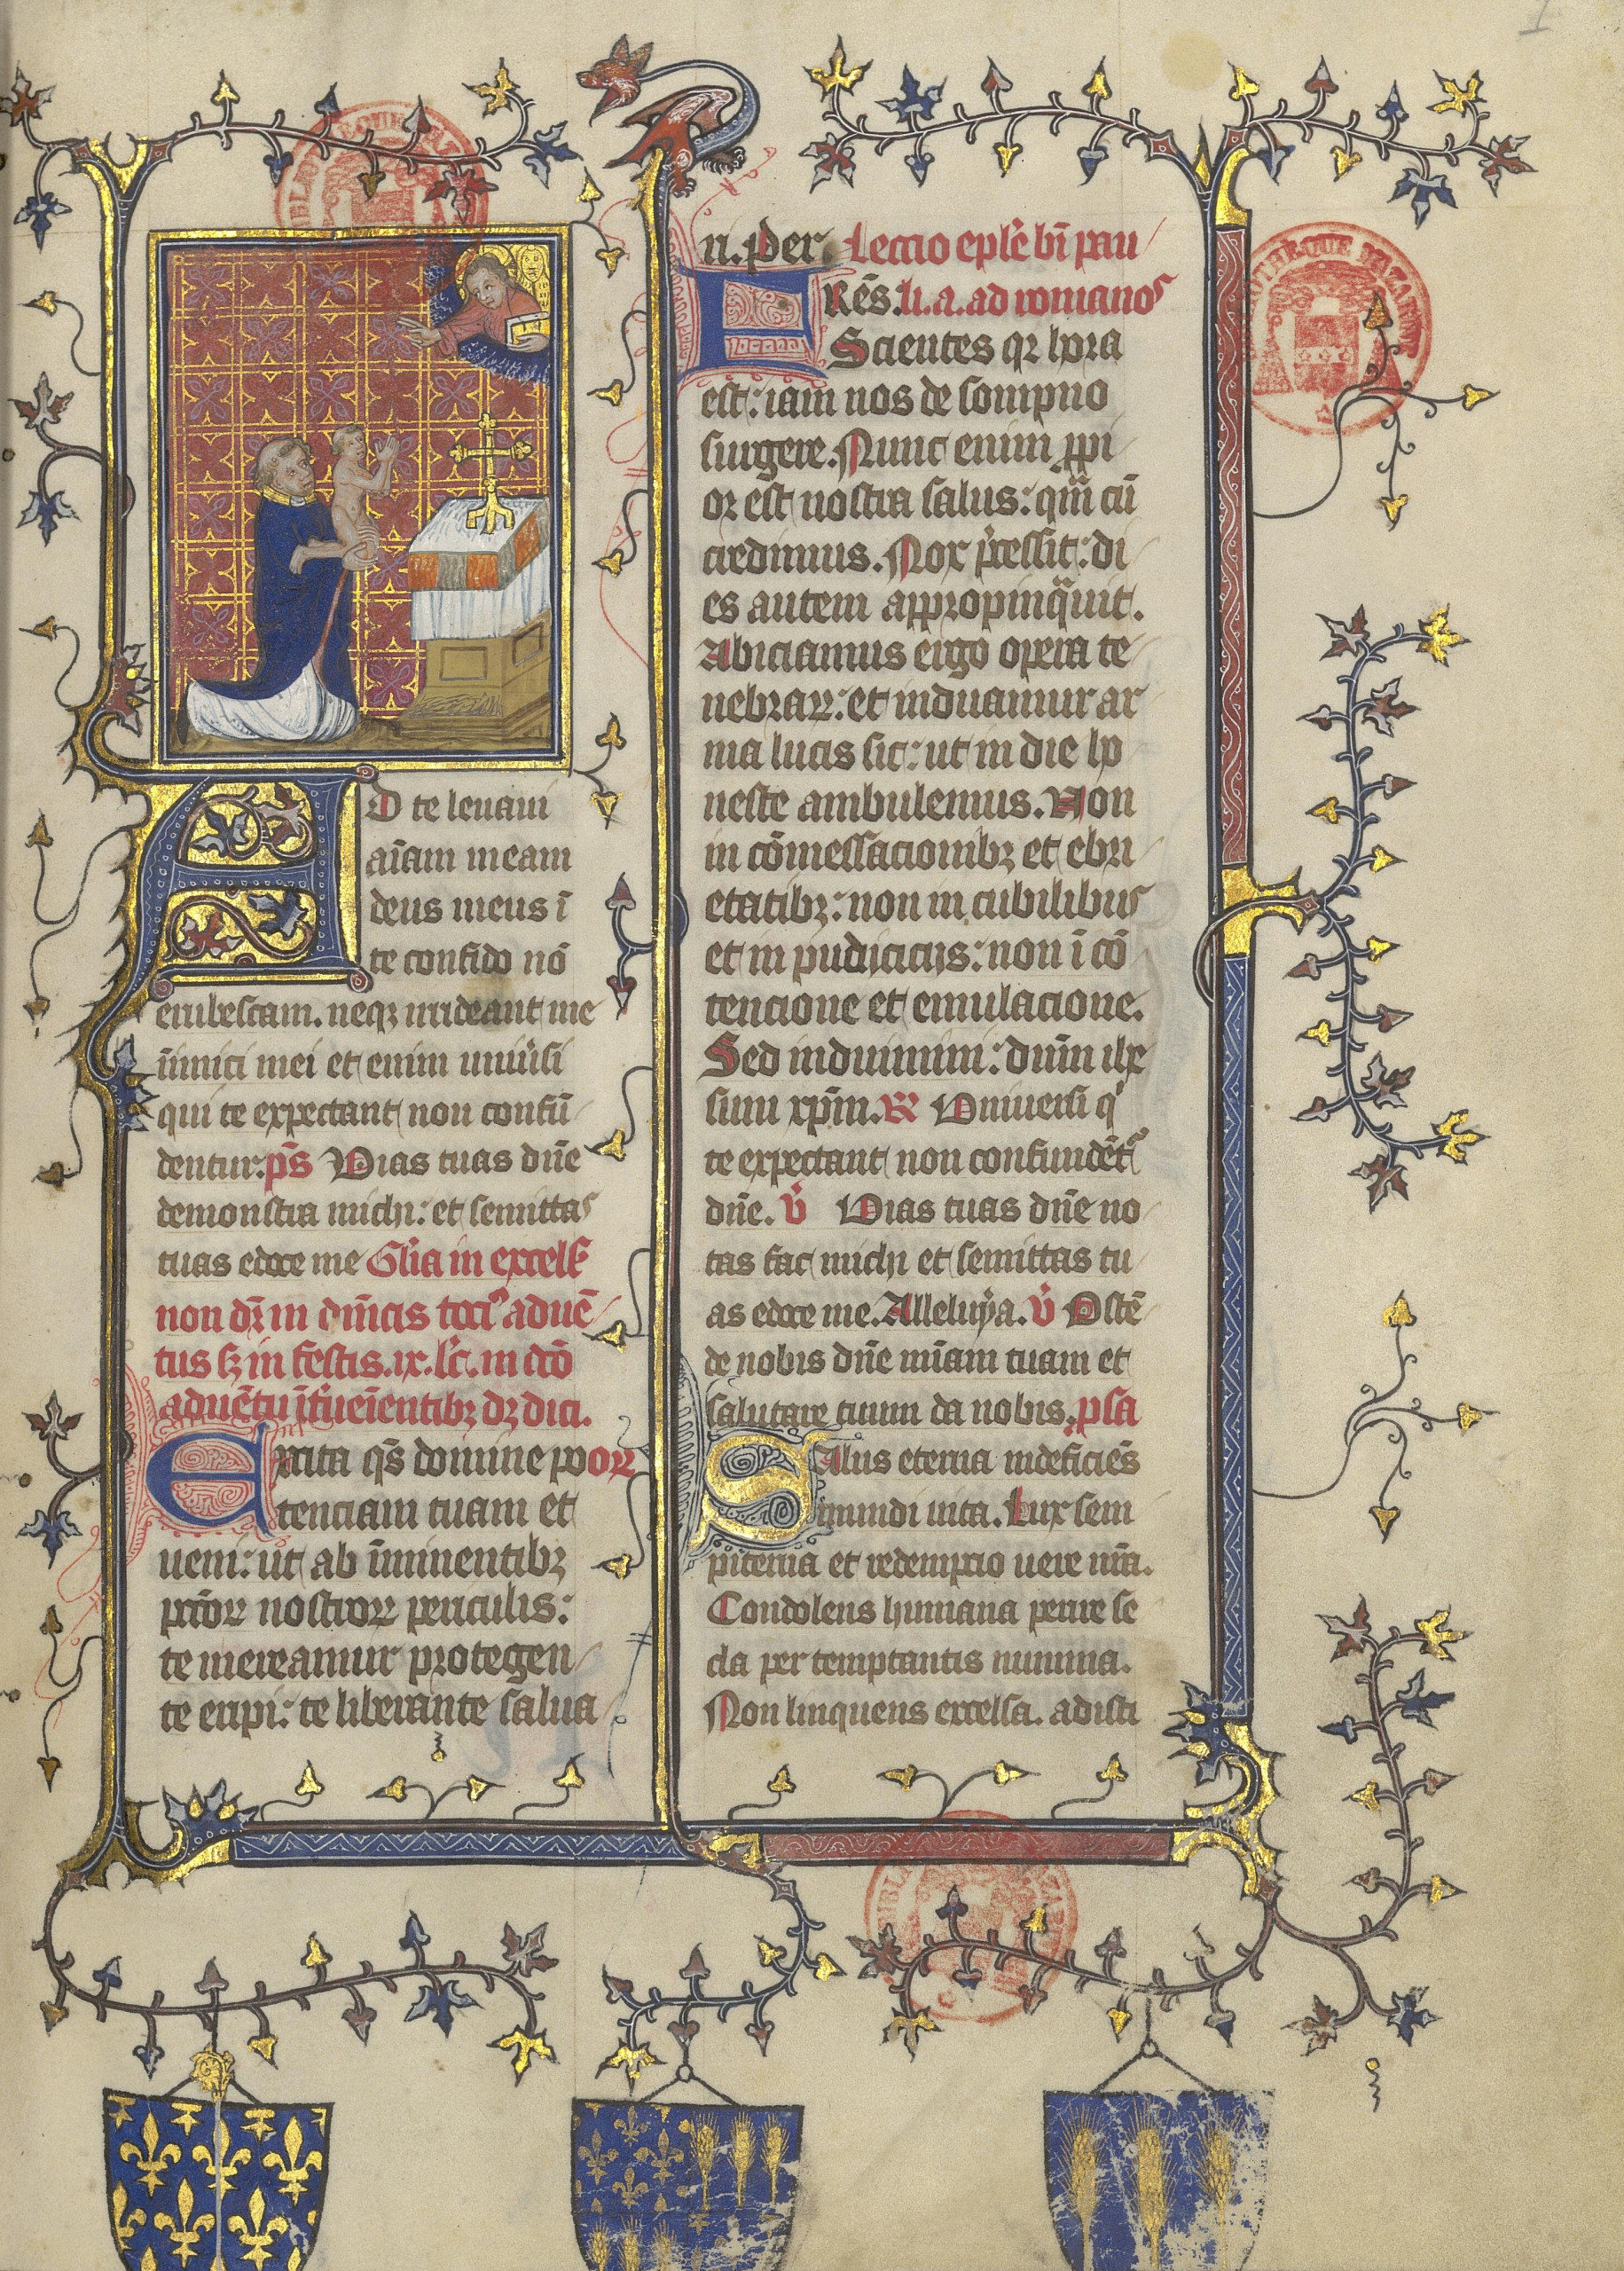 AD te leuaui
aīam meam
deus meus ī
te confido nō
erubescam. neqꝫ irrideant me
īimici mei et enim uniu̾si
qui te expectant non confū
dentur. pˢ Vias tuas dn̄e
demonstra michi: et semittas
tuas edoce me Gl̾ia in excelsꝭ
non dr̄ in dn̄icis tociꝰ aduē
tus sꝫ in festis .ix. lc̄. in dc̄o
aduētu īt̾ueīentibꝫ dꝫ dici.
Excita qs̄ domine po orꝛ
tenciam tuam et
ueni: ut ab īminentibꝫ
pccōꝝ nostroꝝ periculis:
te mereamur protegen
te eripi: te liberante salua
ri. Per Leccio ep̄le bī pau
FRēs: li. a. ad romanos
Scientes qꝛ hora
est: iam nos de sompno
surgere. Nunc enim ꝓpi
or est nostra salus: qm̄ cū
credimus. Nox p̄cessit: di
es autem appropinqͣuit.
Abiciamus ergo opera te
nebraꝝ: et induamur ar
ma lucis sic: ut in die ho
neste ambulemus. Non
in cōmessacionibꝫ et ebri
etatibꝫ: non in cubilibus
et inpudiciciis: non ī cō
tencione et emulacione.
Sed induimini: dn̄m ihe
sum xp̄m. R Vniuersi qͥ
te expectant non confundētᷣ
dn̄e. V̾ Vias tuas dn̄e no
tas fac michi et semittas tu
as edoce me. Alleluya. V̾ Ostē
de nobis dn̄e mīam tuam et
salutare tuum da nobis. psa
SAlus eterna indeficiēs
mundi uita. Lux sem
piterna et redempcio uere nr̄a.
Condolens humana perire se
cla per temptantis numina.
Non linquens excelsa. adisti
BIBLIOTHEQUE MAZARINE
1